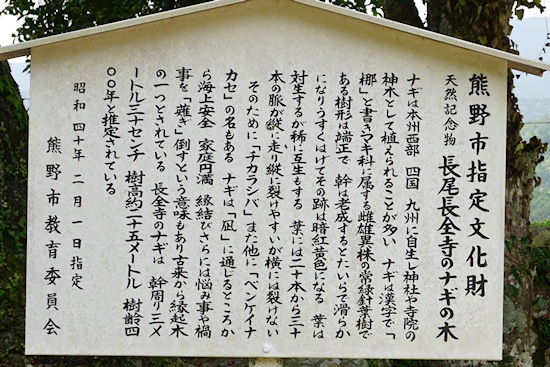 熊野市指定文化財
天然記念物 長尾長全寺のナギの木
ナギは本州西部 四国 九州に自生し神社や寺院の
神木として植えられることが多い ナギは漢字で「
梛」と書きマキ科に属する雌雄異株の常緑針葉樹で
ある樹形は端正で 幹は老成するとたいらで滑らか
になりうすくはげてその跡は暗紅黄色になる 葉は
対生するが稀に互生もする 葉には二十本から三十
本の脈が縦に走り縦に裂けやすいが横には裂けない
そのために「チカラシバ」また他に「ベンケイナ
カセ」の名もある ナギは「凪」に通じるところか
ら海上安全 家庭円満 縁結びさらには悩み事や禍
事を「薙ぎ」倒すという意味もあり古来から縁起木
の一つとされている 長全寺のナギは 幹周り三メ
ートル三十センチ 樹高約二十五メートル 樹齢四
〇〇年と推定されている
昭和四十年二月一日指定
熊野市教育委員会